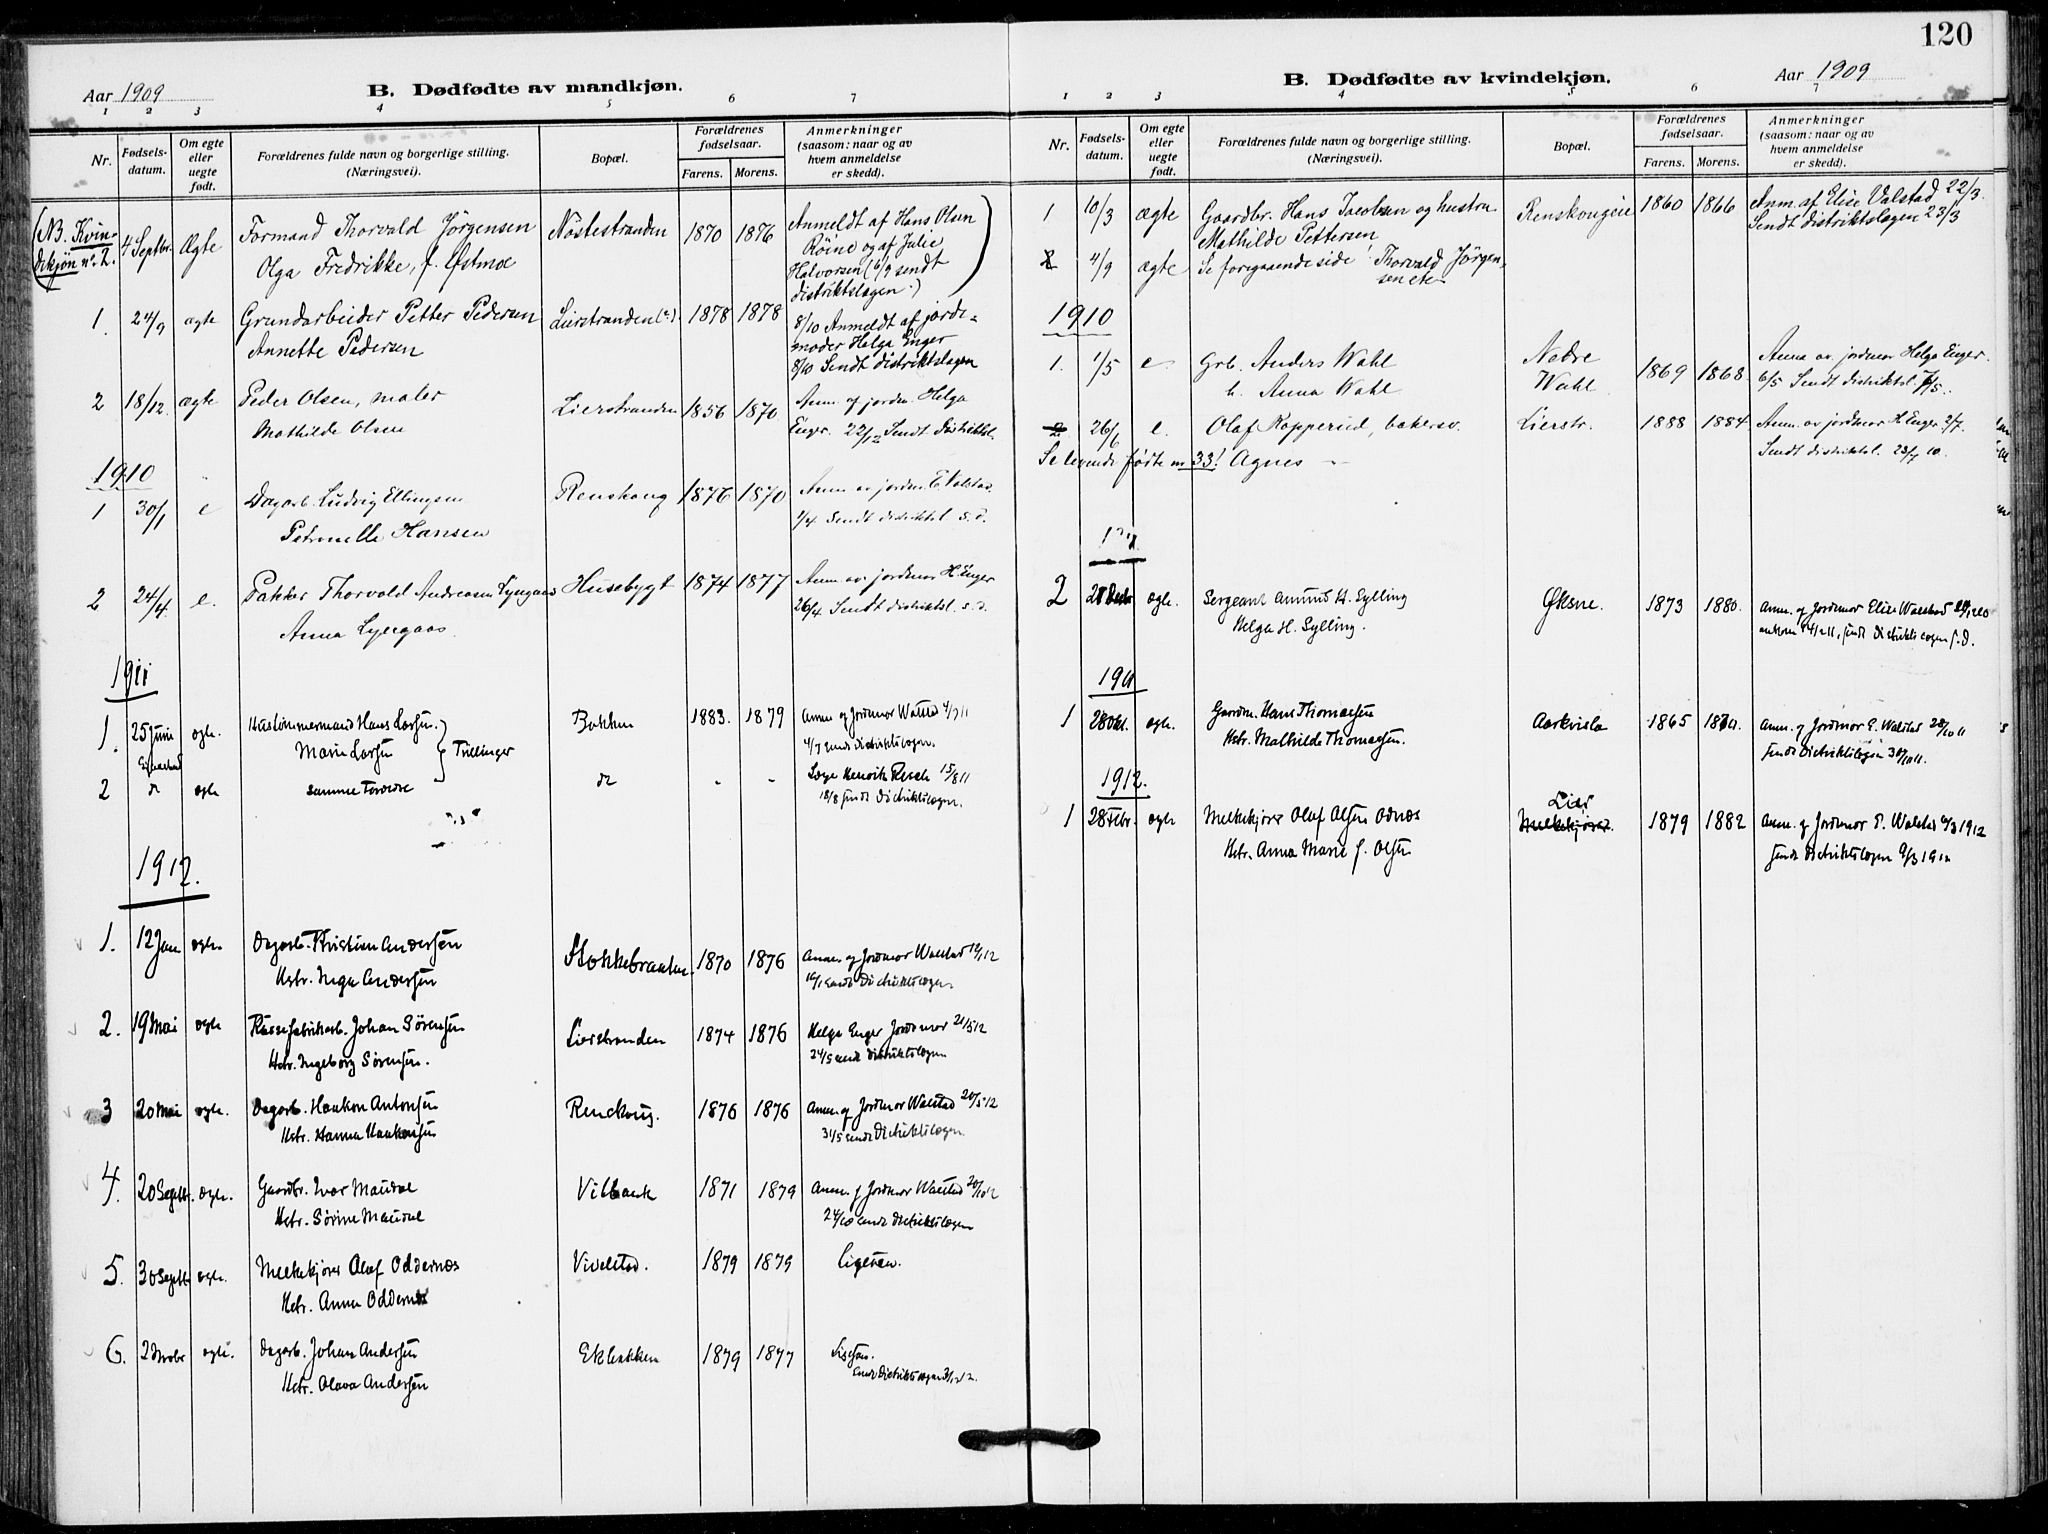 120
Aar 1909
B. Dødfødte av mandkjøn.
1 2 3 4 5 6 7
Nr.
Fødsels-
datum.
Om egte
eller
uegte
født.
Forældrenes fulde navn og borgerlige stilling.
(Næringsvei).
Bopæl.
Forældrenes
fødselsaar.
Farens. Morens.
Anmerkninger
(saasom: naar og av
hvem anmeldelse
er skedd).
(NB. Kvin-
dekjøn nr. 2.
4 Septbr. Ægte Formand Thorvald Jörgensen Nöstestranden 1870 1876 Anmeldt af Hans Olsen
Olga Fredrikke, f. Østmoe
Röine og af Julie
Halvorsen (6/9 sendt
distriktslægen.)
1 24/9 ægte Grundarbeider Petter Pedersen Lierstranden 1878 1878 8/10 Anmeldt af jorde-
Annette Pedersen
moder Helga Enger
8/10 Sendt distriktslægen
2 18/12 ægte Peder Olsen, maler Lierstranden 1856 1870 Anm. af jordm. Helga
Mathilde Olsen
Enger. 22/12 Sendt distriktsl.
1910
1 30/1 e Dagarb. Ludvig Ellingsen Renskoug 1876 1870 Anm. av jordm. E. Valstad.
Petronelle Hansen
1/4 Sendt distriktsl. s. d.
2 24/4 e. Pakker Thorvald Andreasen Lyngaas Husebygt 1874 1877 Anm. av. jordmor H. Enger
Anna Lyngaas.
26/4 Sendt distriktsl. s. d.
1911
1. 25 Juni ægte. Hustømmermand Hans Larsen. Bakken 1883. 1879 Anm. af Jordmor Walstad 4/7 11
Marie Larsen
Trillinger
4/7 sendt distriktslægen.
2 do ægte samme forældre do - - Læge Henrik Resch 15/8 11
18/8 sendt distriktslægen.
1912.
1. 12 Jan ægte. Dagarb. Kristian Andersen Stokkebraaten 1870 1876 Anm. af Jordmor Walstad
Hstr. Inga Andersen
sendt Distriktslægen.
2. 19 Mai ægte Kassefabrikarb. Johan Sørensen Lierstranden 1874 1876 Helga Enger Jordmor 21/5 12
Hstr. Ingeborg Sørensen.
24/5 sendt distriktslægen
3 20 Mai ægte. Dagarb. Haakon Antonsen Renskoug. 1876 1876 Anm. af Jordmor Walstad 20/5 12
Hstr. Hanna Haakonsen
31/5 sendt Distriktslægen.
4. 20 Septbr. ægte. Gaardbr. Ivar Maudal Vilbank 1871 1879 Anm. af Jordmor Walstad 20/10 12
Hstr. Sørine Maudal
24/10 sendt distriktslægen
5. 30 Septbr. ægte. Melkekjører Olaf Oddernæs Vivelstad. 1879 1879 Ligesaa.
Hstr. Anna Oddernæs
6. 2 Novbr ægte. Dagarb. Johan Andersen Ekbakken 1879 1877 Ligesaa.
Hstr. Olava Andersen
sendt Distriktslægen
B. Dødfødte av kvindekjøn.
Aar 1909
1 2 3 4 5 6 7
Nr.
Fødsels-
datum.
Om egte
eller
uegte
født.
Forældrenes fulde navn og borgerlige stilling.
(Næringsvei).
Bopæl.
Forældrenes
fødselsaar.
Farens. Morens.
Anmerkninger
(saasom: naar og av
hvem anmeldelse
er skedd).
1 10/3 ægte Gaardbr. Hans Jacobsen og hustru Renskougeie 1860 1866 Anm. af Elise Valstad 22/3.
Mathilde Pettersen
Sendt distriktslægen 23/3
2 4/9 ægte Se foregaaende side! Thorvald Jörgen-
sen etc
1910
1. 1/5 e Grb. Anders Wahl Nedre
Wahl 1869 1868 Anm. av. jordmor Helga Enger.
h. Anna Wahl
6/5 Sendt distriktsl. 7/5.
2 26/6 e. Olaf Kopperud, bakersv. Lierstr. 1888 1884 Anm. av jordmor H. Enger 2/7.
Se levende fødte nr 33! Agnes —
Sendt distriktsl. 23/7 10.
2 28 Decbr ægte. Sergeant Amund H. Sylling Øksne. 1873 1880. Anm. af Jordmor Elise Walstad
Helga H. Sylling.
sendt Distriktslægen s. d.
1911
1 28 Okt. ægte. Gaardm. Hans Thomassen Aarkvisla 1865 Anm. af Jordmor E. Walstad 28/10 11
Hstr. Mathilde Thomassen.
sendt Distriktslægen 30/10 11.
1912.
1 28 Febr. ægte Melkekjører Olaf Olsen Odnæs Lier
Melkekjører. 1879 1882 Anm. af Jordmor E. Walstad 6/3 1912
Hstr. Anna Marie f. Olsen
sendt Distriktslægen 9/3 1912